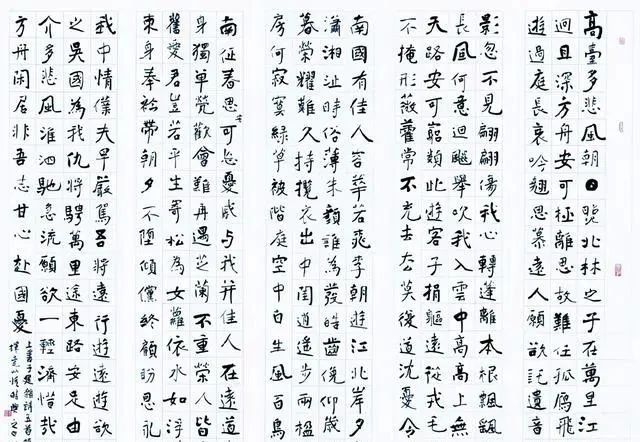 高臺多悲風朝日曉北林之子在萬里江
迴且深方舟安可極離思故難任孤鴈飛
遊過庭長哀吟翹思慕遠人願欲託遺音
影忽不見翩翩傷我心轉蓬離本根飄飄
長風何意迴飈舉吹我入雲中高高上無
天路安可窮類此遊客子捐軀遠從戎毛
不掩形薇藿常不充去去莫復道沈憂令
南國有佳人容華若桃李朝遊江北岸夕
瀟湘沚時俗薄朱顏誰為發皓齒俛仰歲
暮榮耀難久持攬衣出中閨逍遙步兩楹
房何寂寞綠草被階庭空中自生風百鳥
南征春思可忘憂慼与我并佳人在遠道
身獨單煢歡會難再遇芝蘭不重榮人皆
舊愛君豈若平生寄松為女蘿依水如浮
束身奉衿帶朝夕不墮傾儻終顧盼恩永
我中情僕夫早嚴駕吾將遠行遊遠遊欲
之吳國為我仇將騁萬里途東路安足由
介多悲風淮泗馳急流願欲一輕濟惜哉
方舟閑居非吾志甘心赴國憂
上書子建雜詩五首